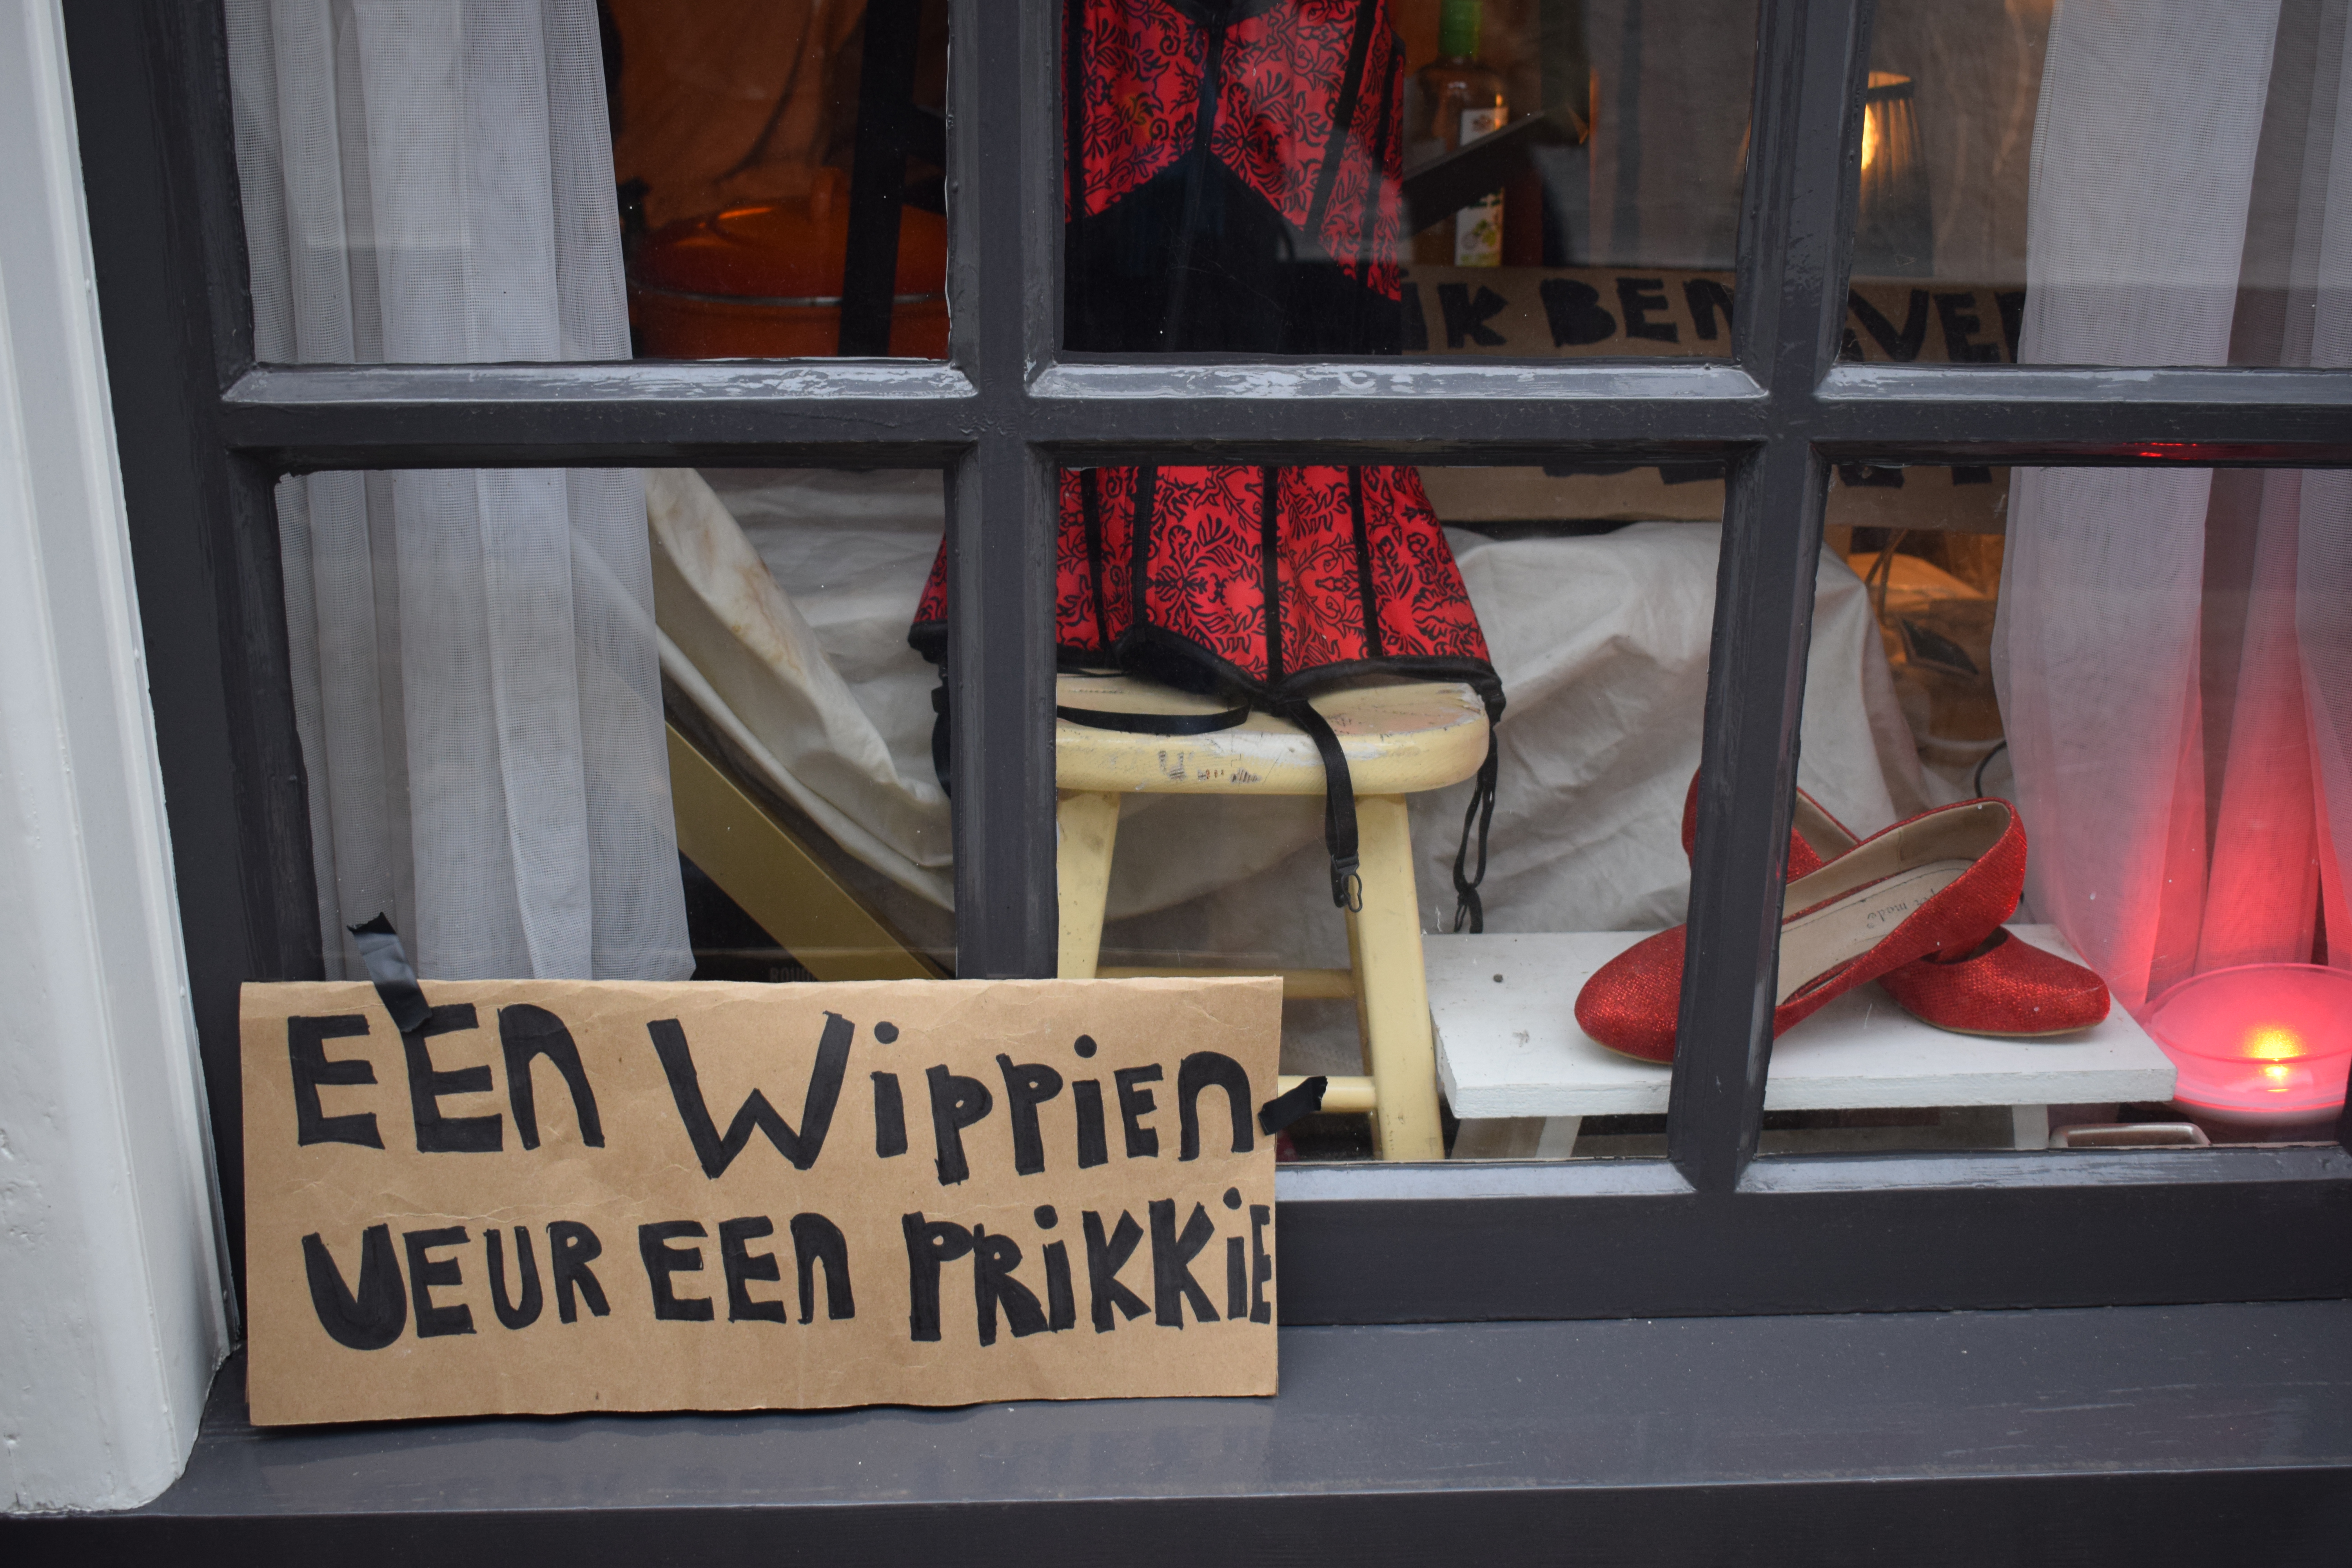 iK BEN
EEN WiPPiEN
VEUR EEN PRiKKiE